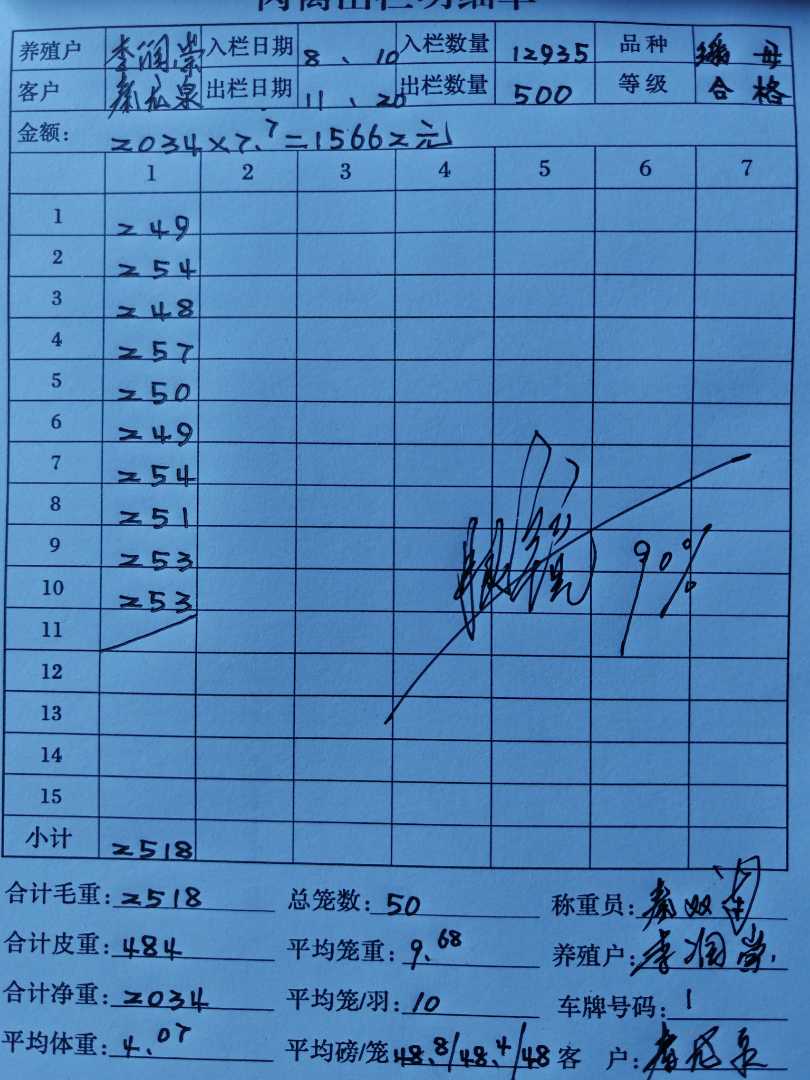 肉禽出栏明细单
养殖户 李润棠 入栏日期 8、10 入栏数量 12935 品种 瑶母
客户 秦龙泉 出栏日期 11、20 出栏数量 500 等级 合格
金额: 2034×7.7=15662元
1 2 3 4 5 6 7
1 249
2 254
3 248
4 257
5 250
6 249
7 254
8 251
9 253
10 253
90%
11
12
13
14
15
小计 2518
合计毛重: 2518 总笼数: 50 称重员: 秦双
合计皮重: 484 平均笼重: 9.68 养殖户: 李润棠
合计净重: 2034 平均笼/羽: 10 车牌号码: 1
平均体重: 4.07 平均磅/笼 48.8/48.4/48 客户: 秦龙泉